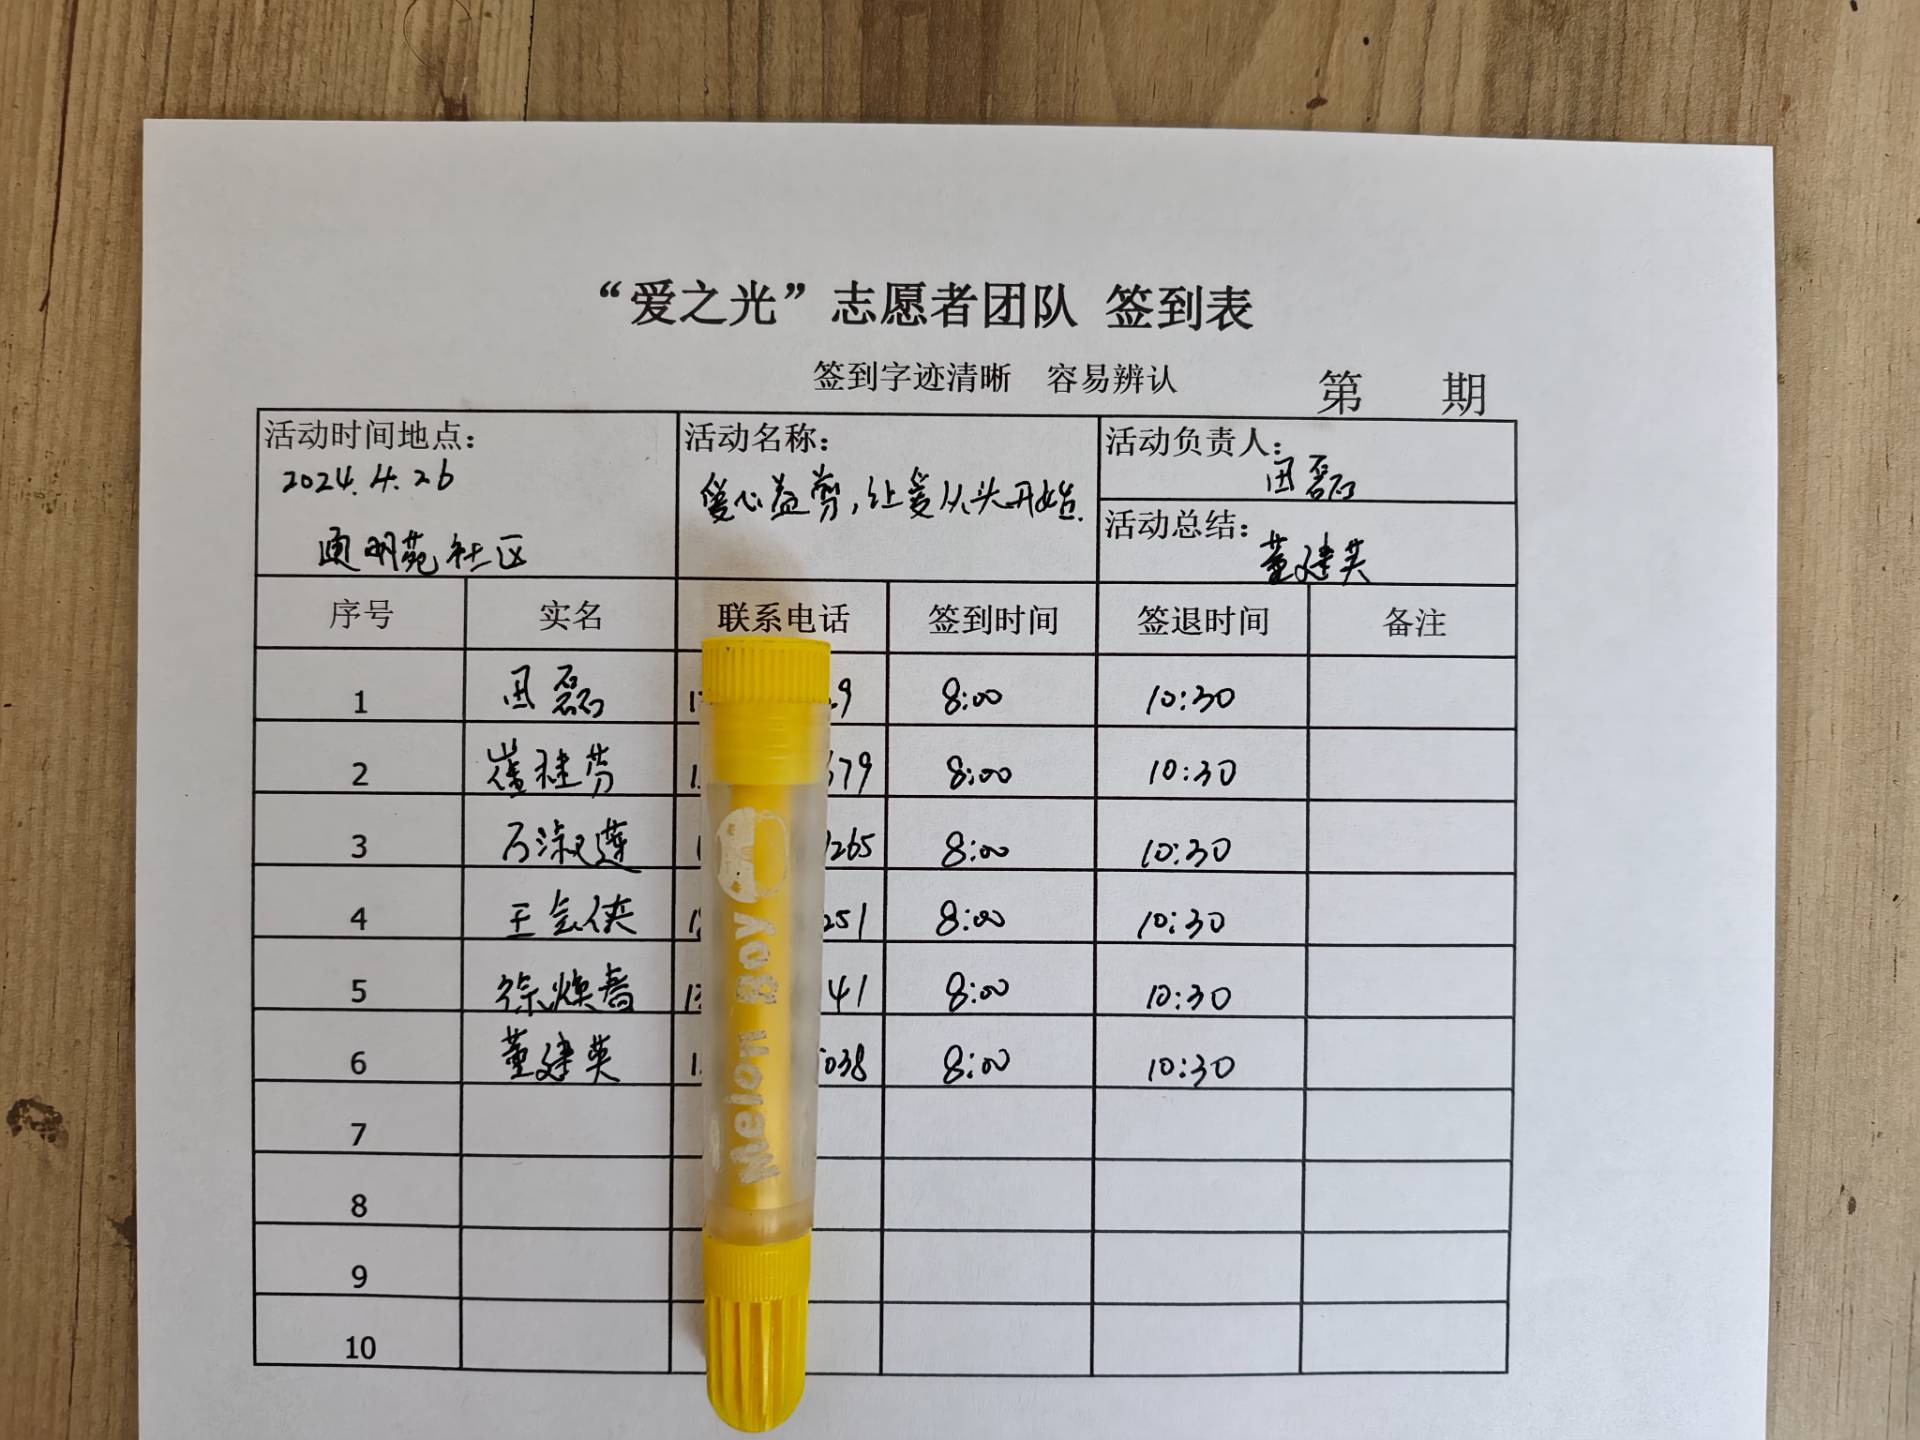 “爱之光”志愿者团队 签到表
签到字迹清晰 容易辨认
第 期
活动时间地点：
2024.4.26
通明苑社区
活动名称：
爱心益剪，让爱从头开始.
活动负责人：
田磊
活动总结：
董建英
序号 实名 联系电话 签到时间 签退时间 备注
1 田磊 9 8:00 10:30
2 崔建芳 679 8:00 10:30
3 石淑莲 265 8:00 10:30
4 王会侠 251 8:00 10:30
5 徐焕春 41 8:00 10:30
6 董建英 038 8:00 10:30
7
8
9
10
Melon Boy